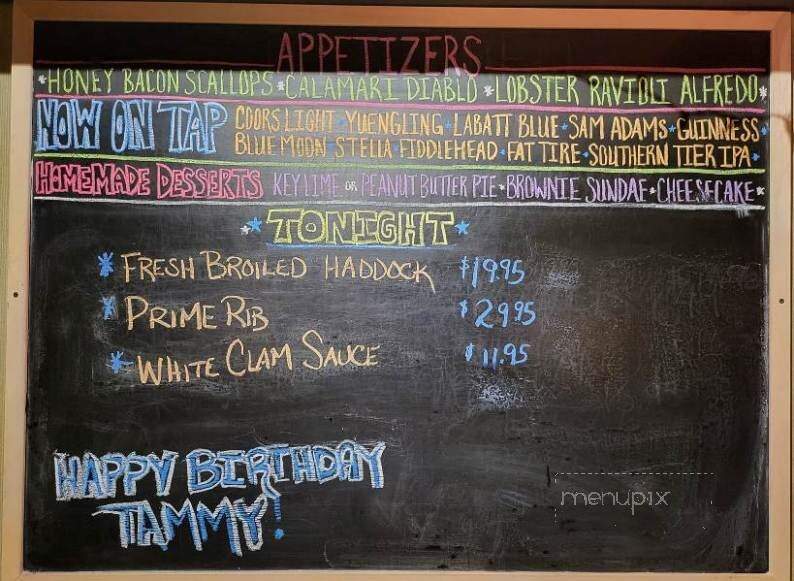 APPETIZERS
*HONEY BACON SCALLOPS*CALAMARI DIABLO*LOBSTER RAVIOLI ALFREDO*
NOW ON TAP COORS LIGHT*YUENGLING*LABATT BLUE*SAM ADAMS*GUINNESS*
BLUE MOON*STELLA*FIDDLEHEAD*FAT TIRE*SOUTHERN TIER IPA*
HOMEMADE DESSERTS KEY LIME OR PEANUT BUTTER PIE*BROWNIE SUNDAE*CHEESECAKE*
*TONIGHT*
* FRESH BROILED HADDOCK $19.95
* PRIME RIB $29.95
* WHITE CLAM SAUCE $11.95
HAPPY BIRTHDAY
TAMMY!
menupix